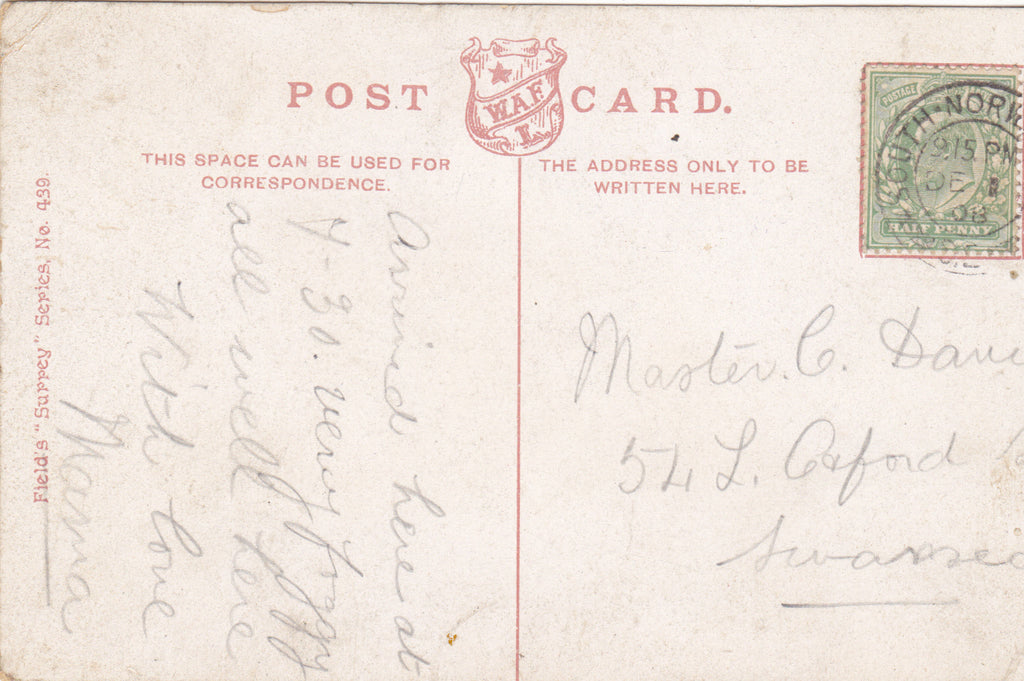 POST CARD.
W.A.F.
L.
THIS SPACE CAN BE USED FOR
CORRESPONDENCE.
THE ADDRESS ONLY TO BE
WRITTEN HERE.
Field's "Surrey" Series, No. 439.
POSTAGE
HALF PENNY
SOUTH-NORW
915 PM
DE 1
08
Arrived here at
7-30. very foggy
all well here
With love
Mama
Master. C. Davi
54 L. Oxford
Swansea